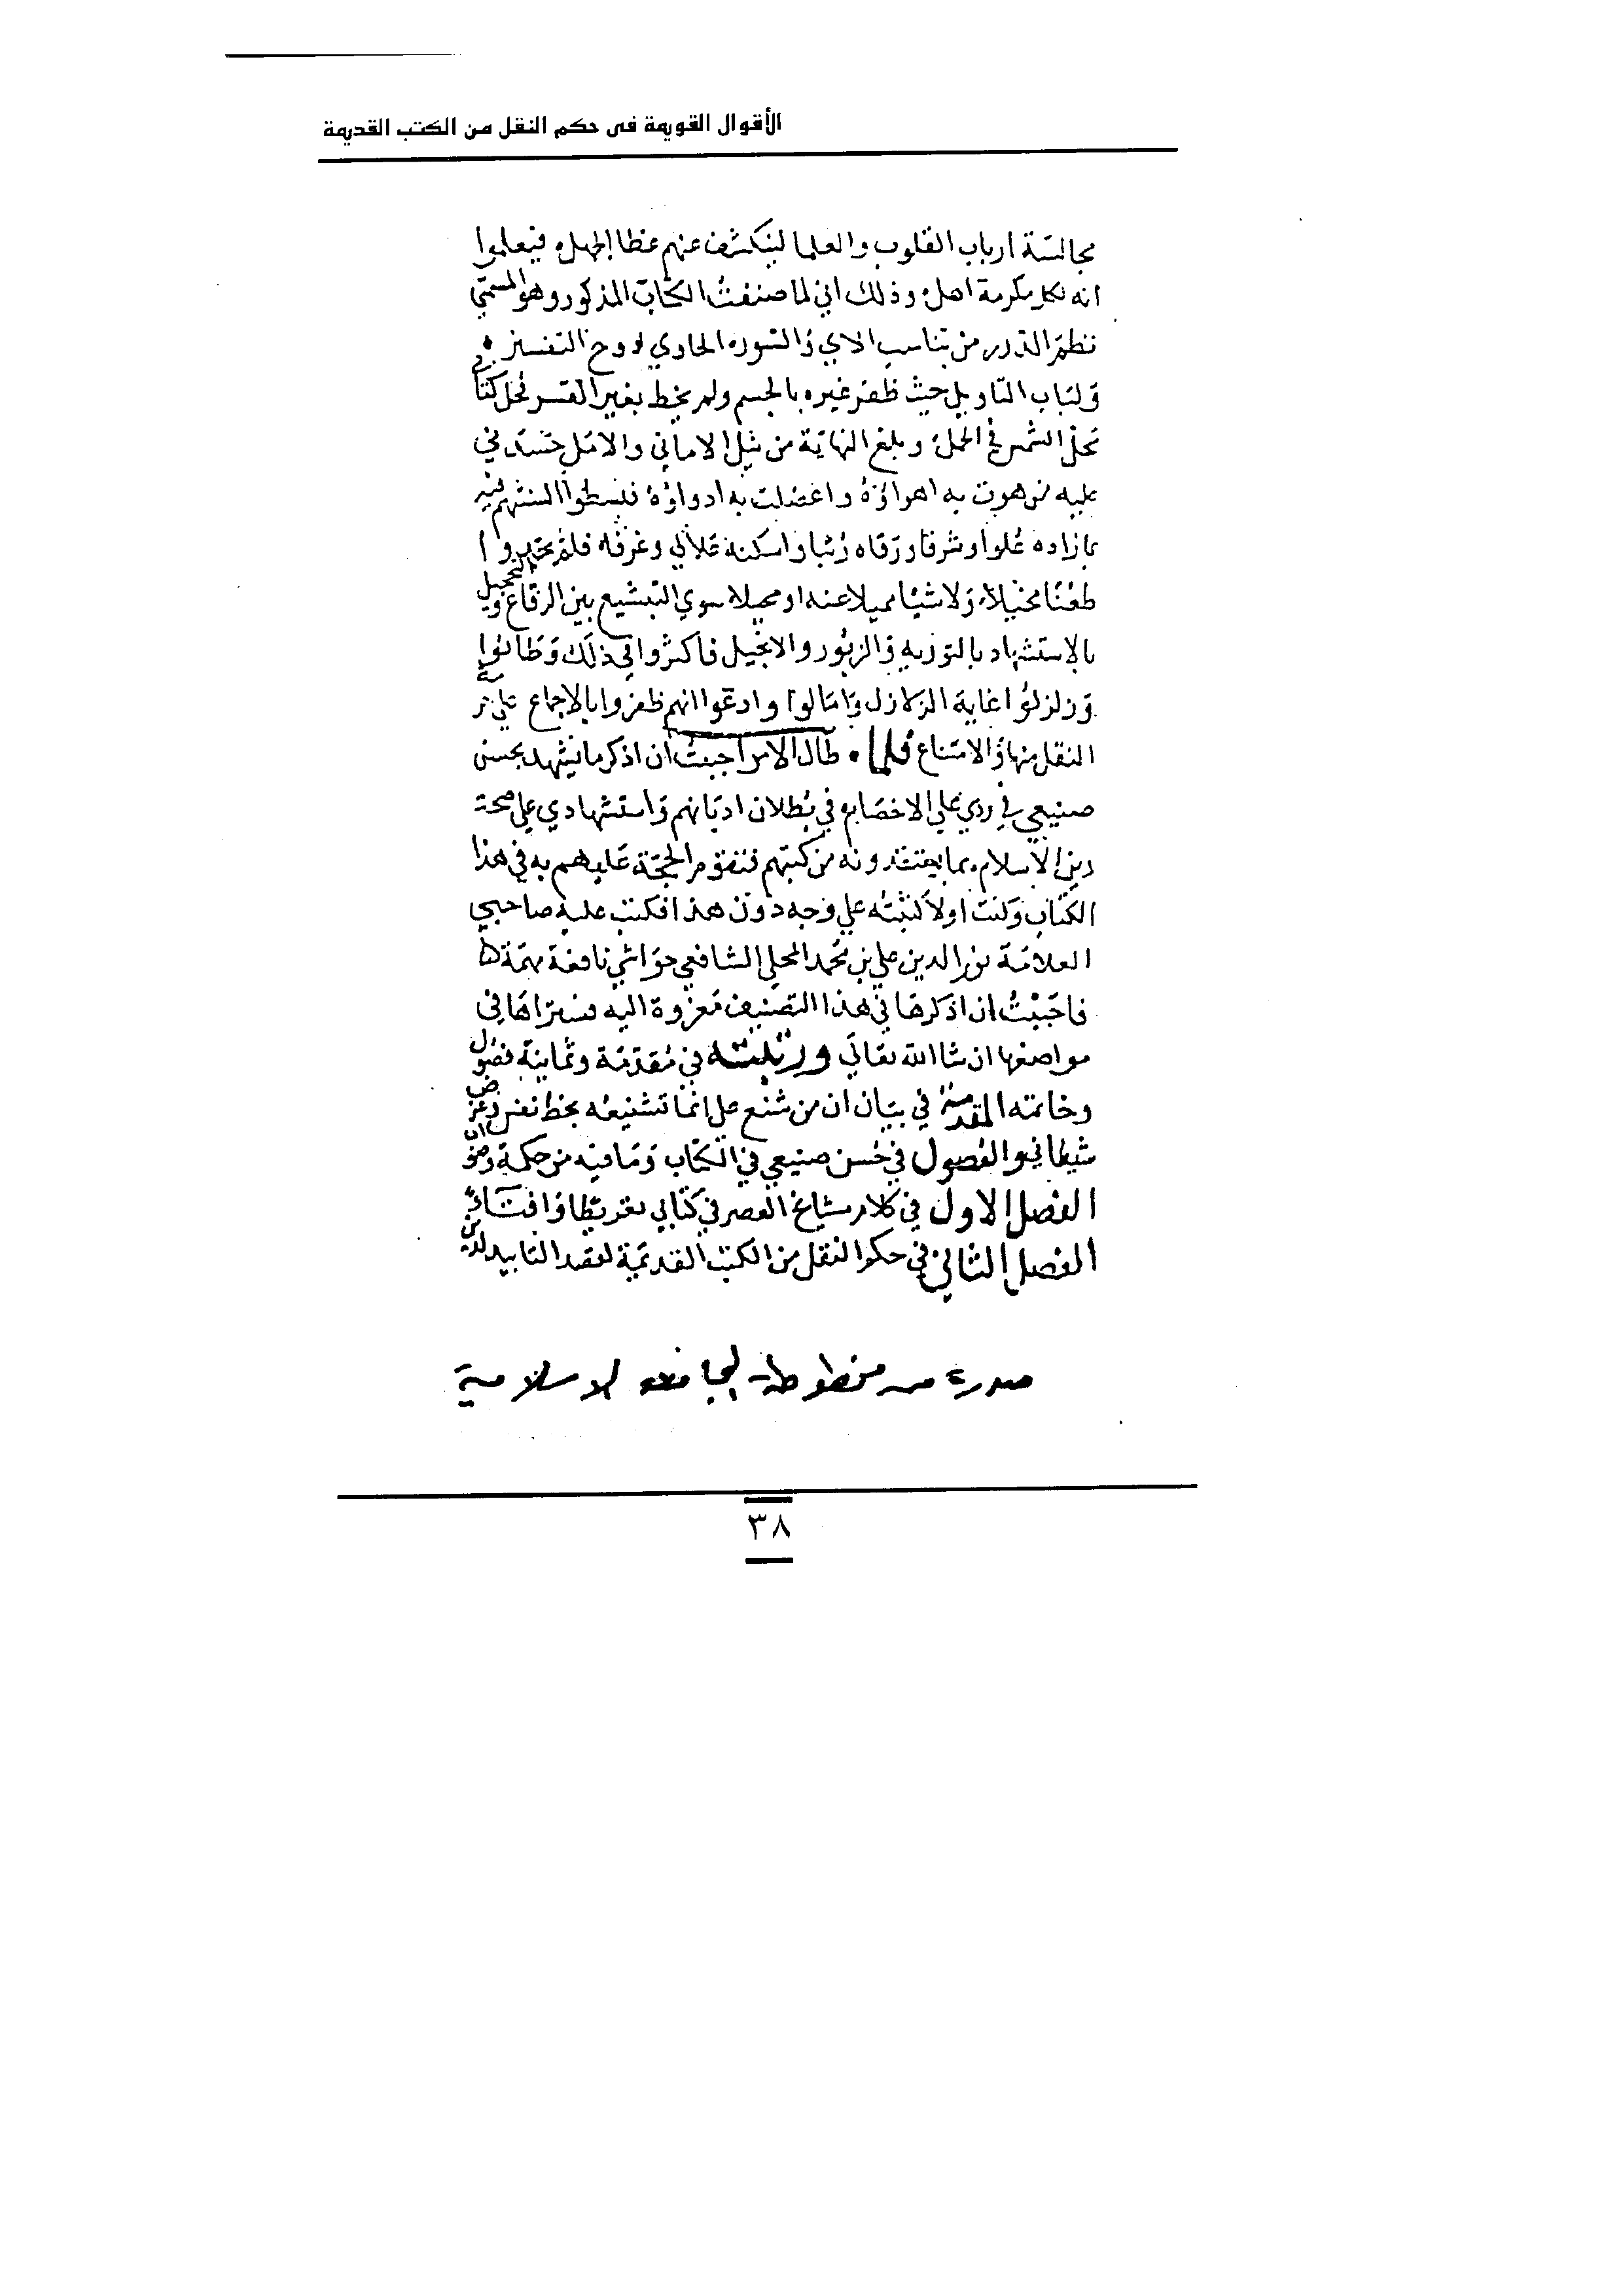 الأقوال القويمة فى حكم النقل من الكتب القديمة
مجالسة ارباب القلوب والعلما لينكشف عنهم غطا الجهل فيعلموا
انه لكل مكرمة اهل وذلك اني لما صنفت الكتاب المذكور وهو المسمى
نظم الدرر من تناسب الاي والسور الحاوي لروح التفسير
ولباب التاويل حيث ظفر غيره بالجسم ولم يحظ بغير القشر فحل
محل الشمس في الحمل وبلغ النهاية من نيل الاماني والامل حسدني
عليه من هوت به اهواؤه واعضلت به ادواؤه فبسطوا السنتهم فيه
بما زاده علوا وشرفا ورقاه رتبا واسكنه علالي وغرفه فلم يحيروا
طعنا مخيلا ولا شيا مميلا عنه او محيلا سوي التبشيع بين الرقاع
بالاستشهاد بالتورية والزبور والانجيل فاكثروا في ذلك وطالوا
وزلزلوا غاية الزلازل وامالوا وادعوا انهم ظفروا بالاجماع علي
النقل منها والامتناع فلما طال الامر احببت ان اذكر ما يشهد بحسن
صنيعي في ردي علي الاخصام في بطلان اديانهم واستشهادي علي صحة
دين الاسلام بما يعتقدونه من كتبهم فتقوم الحجة عليهم به في هذا
الكتاب وكنت اولا كتبته علي وجه دون هذا فكتب عليه صاحبي
العلامة نور الدين علي بن محمد المحلي الشافعي حواشي نافعة مهمة
فاحببت ان اذكرها في هذا التصنيف معزوة اليه فستراها في
مواضعها ان شا الله تعالي ورتبته في مقدمة وثمانية فصول
وخاتمه المقدمة في بيان ان من شنع علي انما تشنيعه بحظ نفس وغرض
شيطاني والفصول في حسن صنيعي في الكتاب وما فيه من حكمة وصواب
الفصل الاول في كلام مشايخ العصر في كتابي تقريظا وافتاء
الفصل الثاني في حكم النقل من الكتب القديمة لقصد التاييد للدين
صورة من مخطوطة الجامعة الاسلامية
٣٨